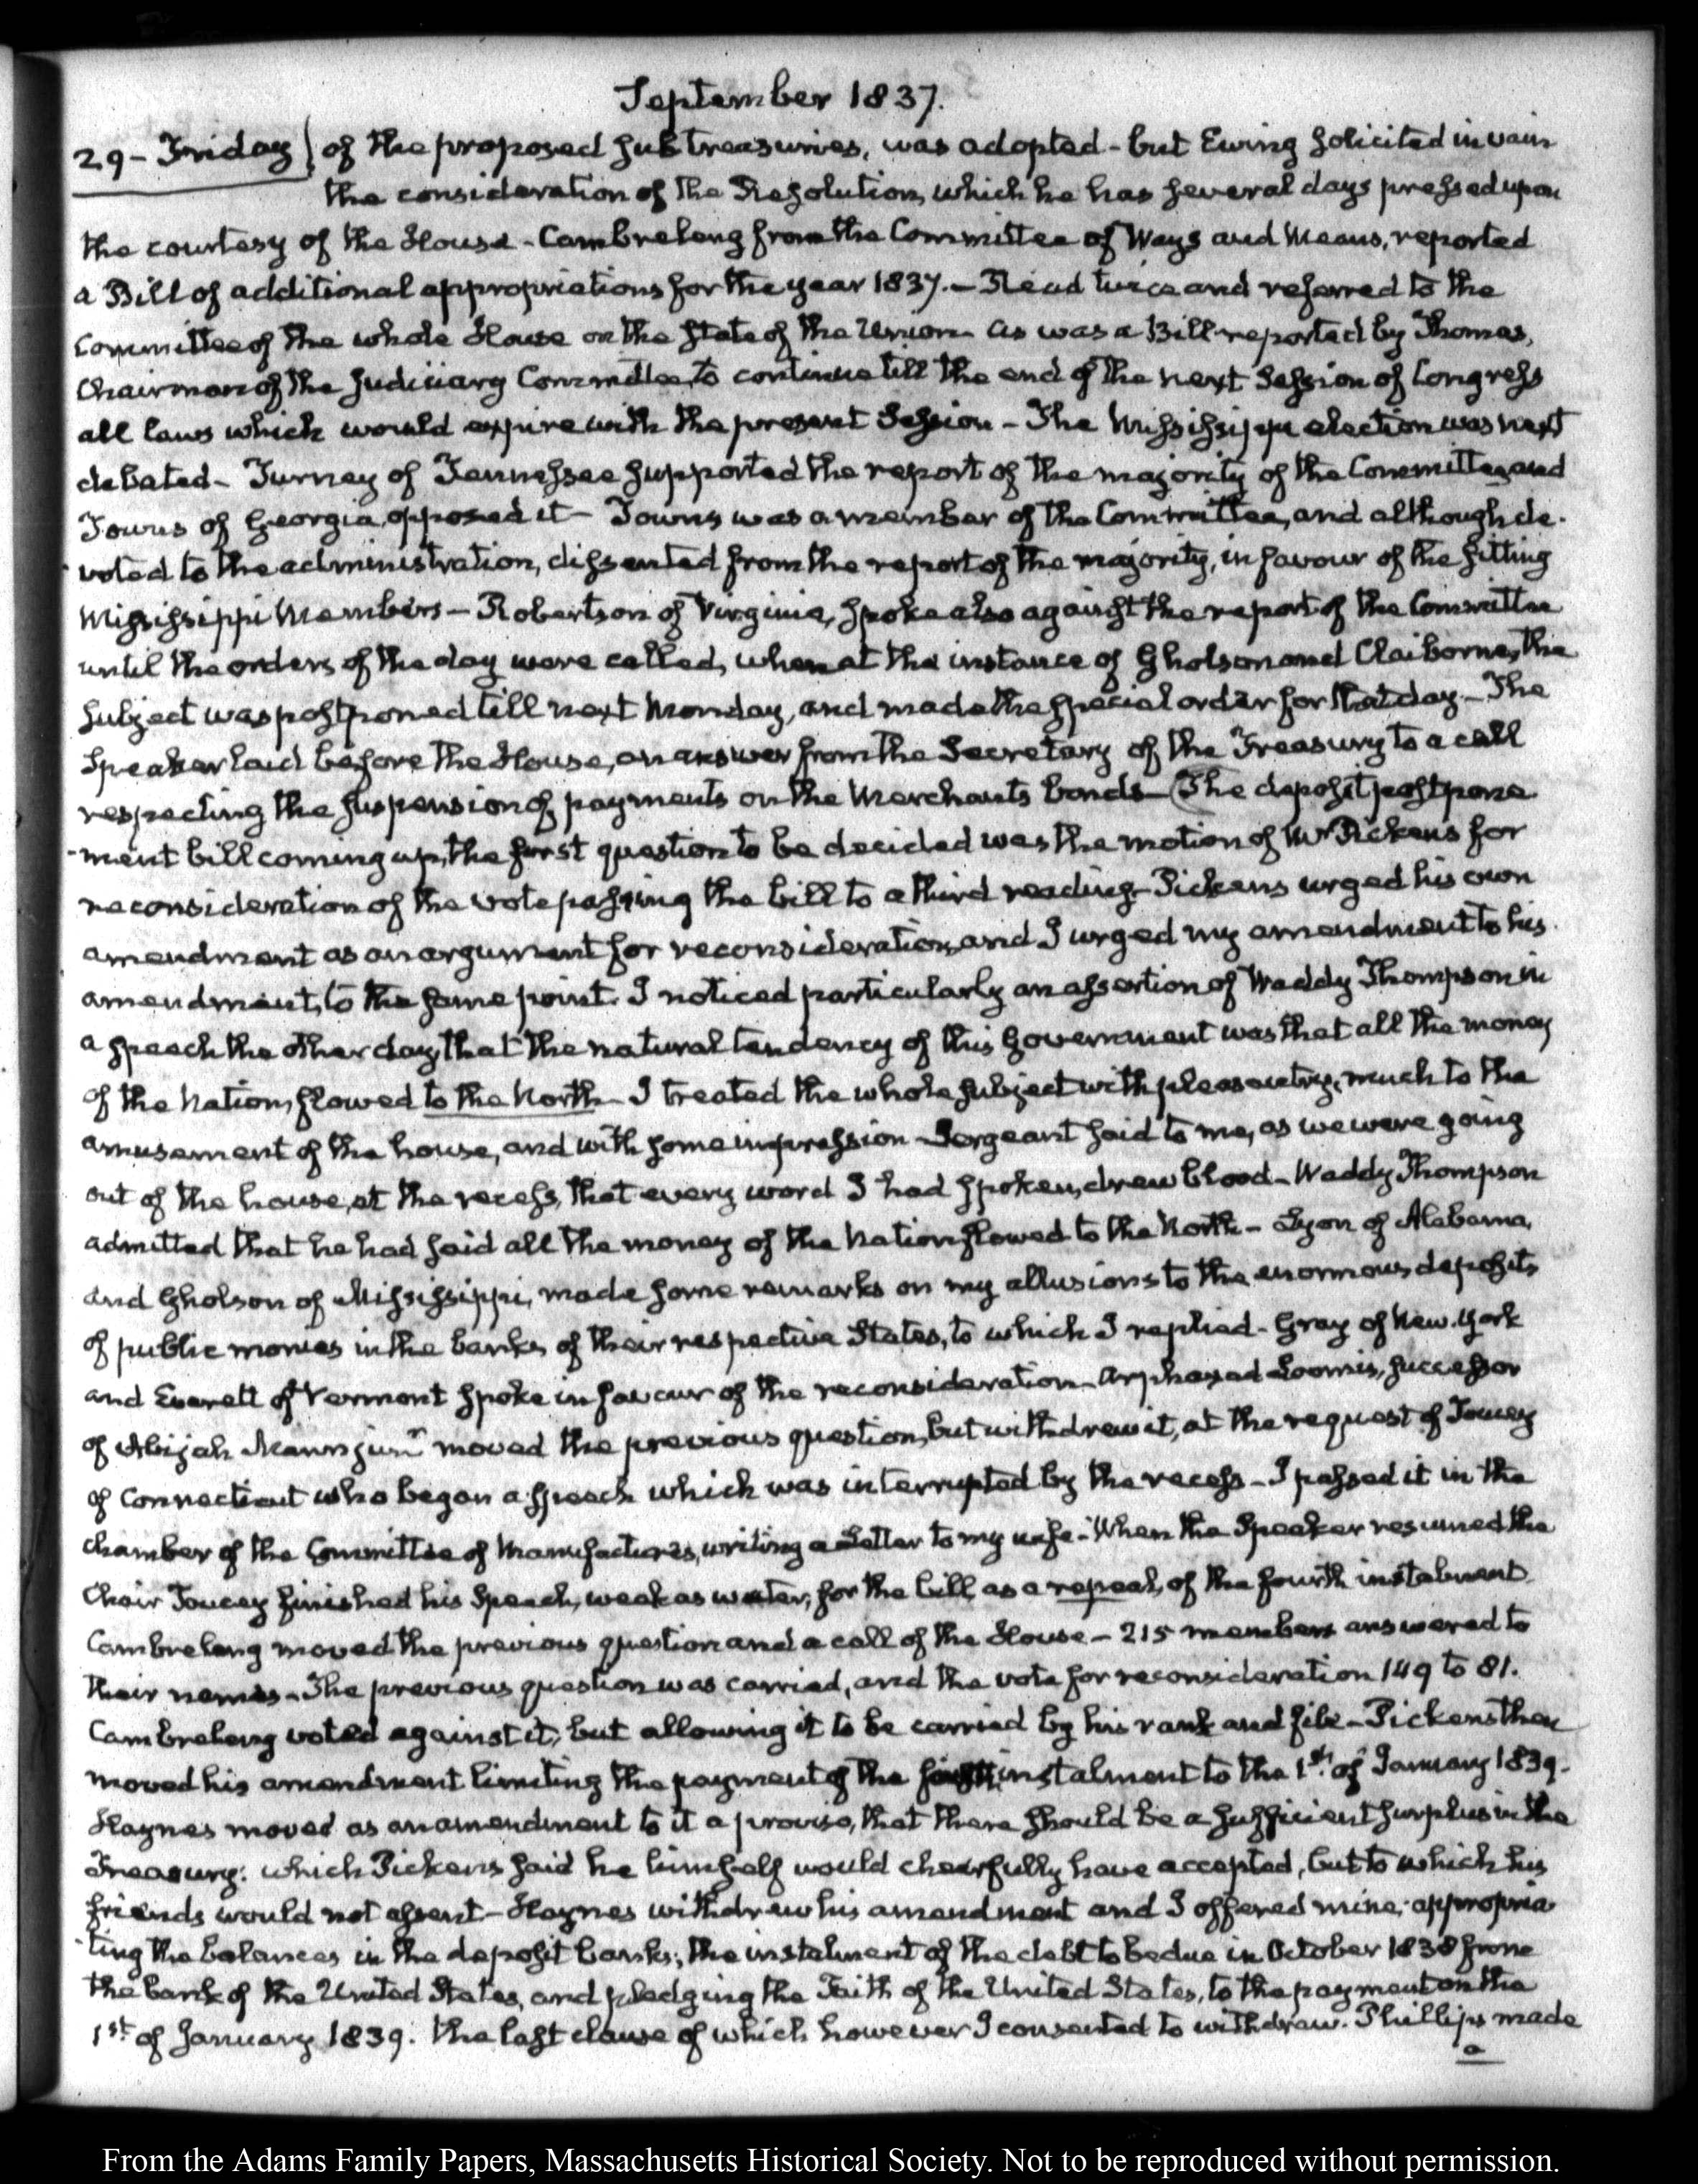 September 1837.
29 - Friday) of the proposed sub treasuries, was adopted - but Ewing solicited in vain
the consideration of the Resolution, which he has several days pressed upon
the courtesy of the House - Cambreleng from the Committee of Ways and Means, reported
a Bill of additional appropriations for the year 1837. - Read twice and referred to the
Committee of the whole House on the state of the Union - as was a Bill reported by Thomas,
Chairman of the Judiciary Committee, to continue till the end of the next Session of Congress
all laws which would expire with the present Session - The Mississippi election was next
debated - Turney of Tennessee supported the report of the majority of the Committee, and
Towns of Georgia, opposed it - Towns was a member of the Committee, and although de-
voted to the administration, dissented from the report of the majority, in favour of the sitting
Mississippi Members - Robertson of Virginia, spoke also against the report of the Committee
until the orders of the day were called, when at the instance of Gholson and Claiborne, the
subject was postponed till next Monday, and made the special order for that day - The
Speaker laid before the House, an answer from the Secretary of the Treasury to a call
respecting the suspension of payments on the Merchants bonds - The deposit postpone
-ment bill coming up, the first question to be decided was the motion of Mr Pickens for
reconsideration of the vote passing the bill to a third reading - Pickens urged his own
amendment as an argument for reconsideration, and I urged my amendment to his
amendment, to the same point. I noticed particularly an assertion of Waddy Thompson in
a speech the other day, that the natural tendency of this Government was that all the money
of the Nation, flowed to the North - I treated the whole subject with pleasantry, much to the
amusement of the house, and with some impression - Sergeant said to me, as we were going
out of the house, at the recess, that every word I had spoken, drew blood - Waddy Thompson
admitted that he had said all the money of the Nation flowed to the North - Lyon of Alabama,
and Gholson of Mississippi, made some remarks on my allusions to the enormous deposits
of public monies in the banks of their respective States, to which I replied - Gray of New-York
and Everett of Vermont spoke in favour of the reconsideration - Arphaxad Loomis, successor
of Abijah Mann junr moved the previous question, but withdrew it, at the request of Toucey
of Connecticut who began a speech which was interrupted by the recess - I passed it in the
chamber of the Committee of Manufactures, writing a Letter to my wife - When the Speaker resumed the
Chair Toucey finished his Speech, weak as water, for the bill, as a repeal, of the fourth instalment
Cambreleng moved the previous question and a call of the House - 215 members answered to
their names - The previous question was carried, and the vote for reconsideration 149 to 81.
Cambreleng voted against it, but allowing it to be carried by his rank and file - Pickens then
moved his amendment limiting the payment of the fourth instalment to the 1st of January 1839.
Haynes moved as an amendment to it a proviso, that there should be a sufficient surplus in the
Treasury: which Pickens said he himself would cheerfully have accepted, but to which his
friends would not assent - Haynes withdrew his amendment and I offered mine; appropria
-ting the balances in the deposit banks; the instalment of the debt to be due in October 1838 from
the bank of the United States, and pledging the Faith of the United States, to the payment on the
1st of January 1839. the last clause of which however I consented to withdraw. Phillips made
a
From the Adams Family Papers, Massachusetts Historical Society. Not to be reproduced without permission.